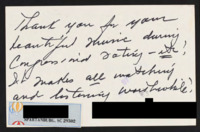 Thank you for your
beautiful music during
Congressional voting -
It makes all watching
and listening worthwhile!
SPARTANBURG, SC 29302